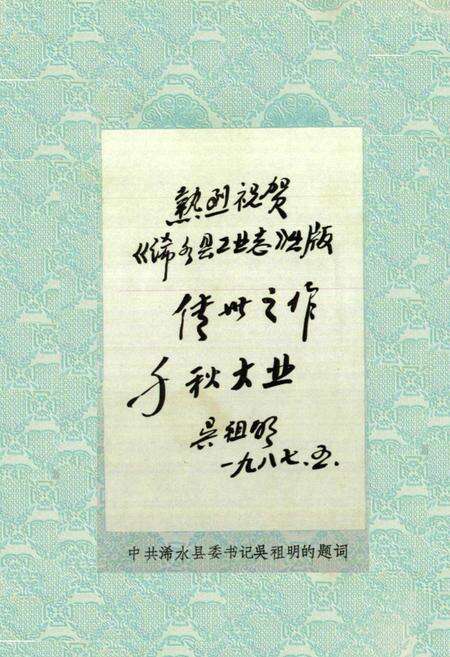 热烈祝贺
《浠水县工业志》出版
传世之作
千秋大业
吴祖明
一九八七.五.
中共浠水县委书记吴祖明的题词